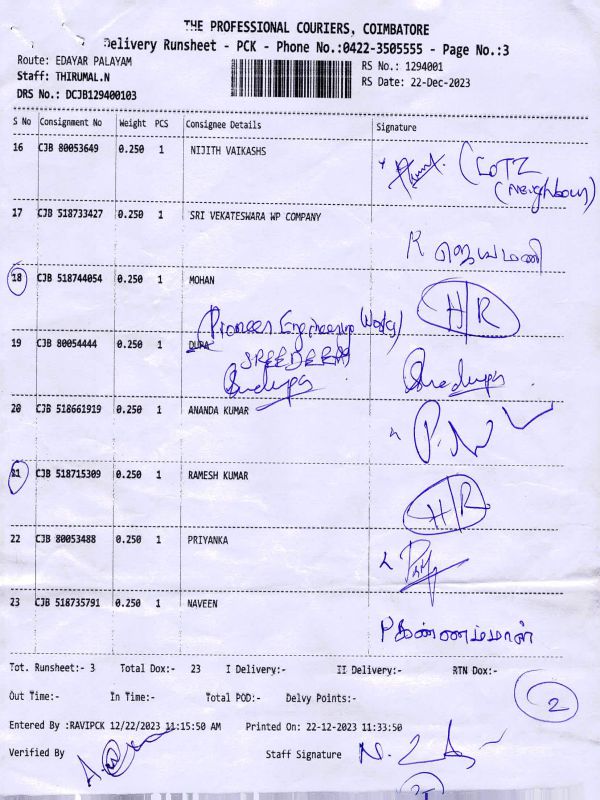 THE PROFESSIONAL COURIERS, COIMBATORE
Delivery Runsheet - PCK - Phone No.:0422-3505555 - Page No.:3
Route: EDAYAR PALAYAM RS No.: 1294001
Staff: THIRUMAL.N RS Date: 22-Dec-2023
DRS No.: DCJB129400103
S No Consignment No Weight PCS Consignee Details Signature
16 CJB 80053649 0.250 1 NIJITH VAIKASHS
(neighbour)
17 CJB 518733427 0.250 1 SRI VEKATESWARA WP COMPANY
R ஜெயமணி
18 CJB 518744054 0.250 1 MOHAN H/R
(Pioneer Engineering Works)
19 CJB 80054444 0.250 1
SREEDEEPA
20 CJB 518661919 0.250 1 ANANDA KUMAR P.N
21 CJB 518715309 0.250 1 RAMESH KUMAR H/R
22 CJB 80053488 0.250 1 PRIYANKA
23 CJB 518735791 0.250 1 NAVEEN
Tot. Runsheet:- 3 Total Dox:- 23 I Delivery:- II Delivery:- RTN Dox:-
2
Out Time:- In Time:- Total POD:- Delvy Points:-
Entered By :RAVIPCK 12/22/2023 11:15:50 AM Printed On: 22-12-2023 11:33:50
Verified By Staff Signature